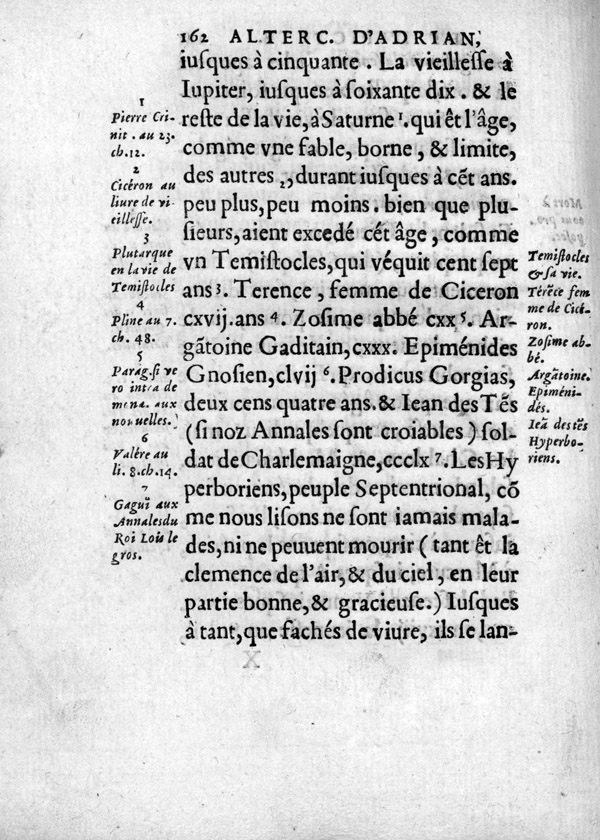 162 ALTERC. D'ADRIAN,
iuſques à cinquante . La vieilleſſe à
Iupiter, iuſques à ſoixante dix . & le
reſte de la vie, à Saturne 1. qui êt l'âge,
comme vne fable, borne, & limite,
des autres 2, durant iuſques à cẽt ans.
peu plus, peu moins. bien que plu-
ſieurs, aient excedé cét âge, comme
vn Temiſtocles, qui véquit cent ſept
ans 3. Terence, femme de Ciceron
cxvij. ans 4. Zoſime abbé cxx 5. Ar-
gãtoine Gaditain, cxxx. Epiménides
Gnoſien, clvij 6. Prodicus Gorgias,
deux cens quatre ans. & Iean des Tẽs
(ſi noz Annales ſont croiables) ſol-
dat de Charlemaigne, ccclx 7. Les Hy
perboriens, peuple Septentrional, cõ
me nous liſons ne ſont iamais mala-
des, ni ne peuuent mourir (tant êt la
clemence de l'air, & du ciel, en leur
partie bonne, & gracieuſe.) Iuſques
à tant, que fachés de viure, ils ſe lan-
1
Pierre Cri-
nit. au 23.
ch.12.
2
Cicéron au
liure de vi-
eilleſſe.
3
Plutarque
en la vie de
Temiſtocles
4
Pline au 7.
ch. 48.
5
Parag. ſi ve
ro intra de
mena. aux
nouuelles.
6
Valére au
li. 8. ch. 14.
7
Gaguĩ aux
Annales du
Roi Loïs le
gros.
Temiſtocles
& ſa vie.
Térẽce fem
me de Cicé-
ron.
Zoſime ab-
bé.
Argãtoine.
Epiméni-
dés.
Ieã des tẽs
Hyperbo-
riens.